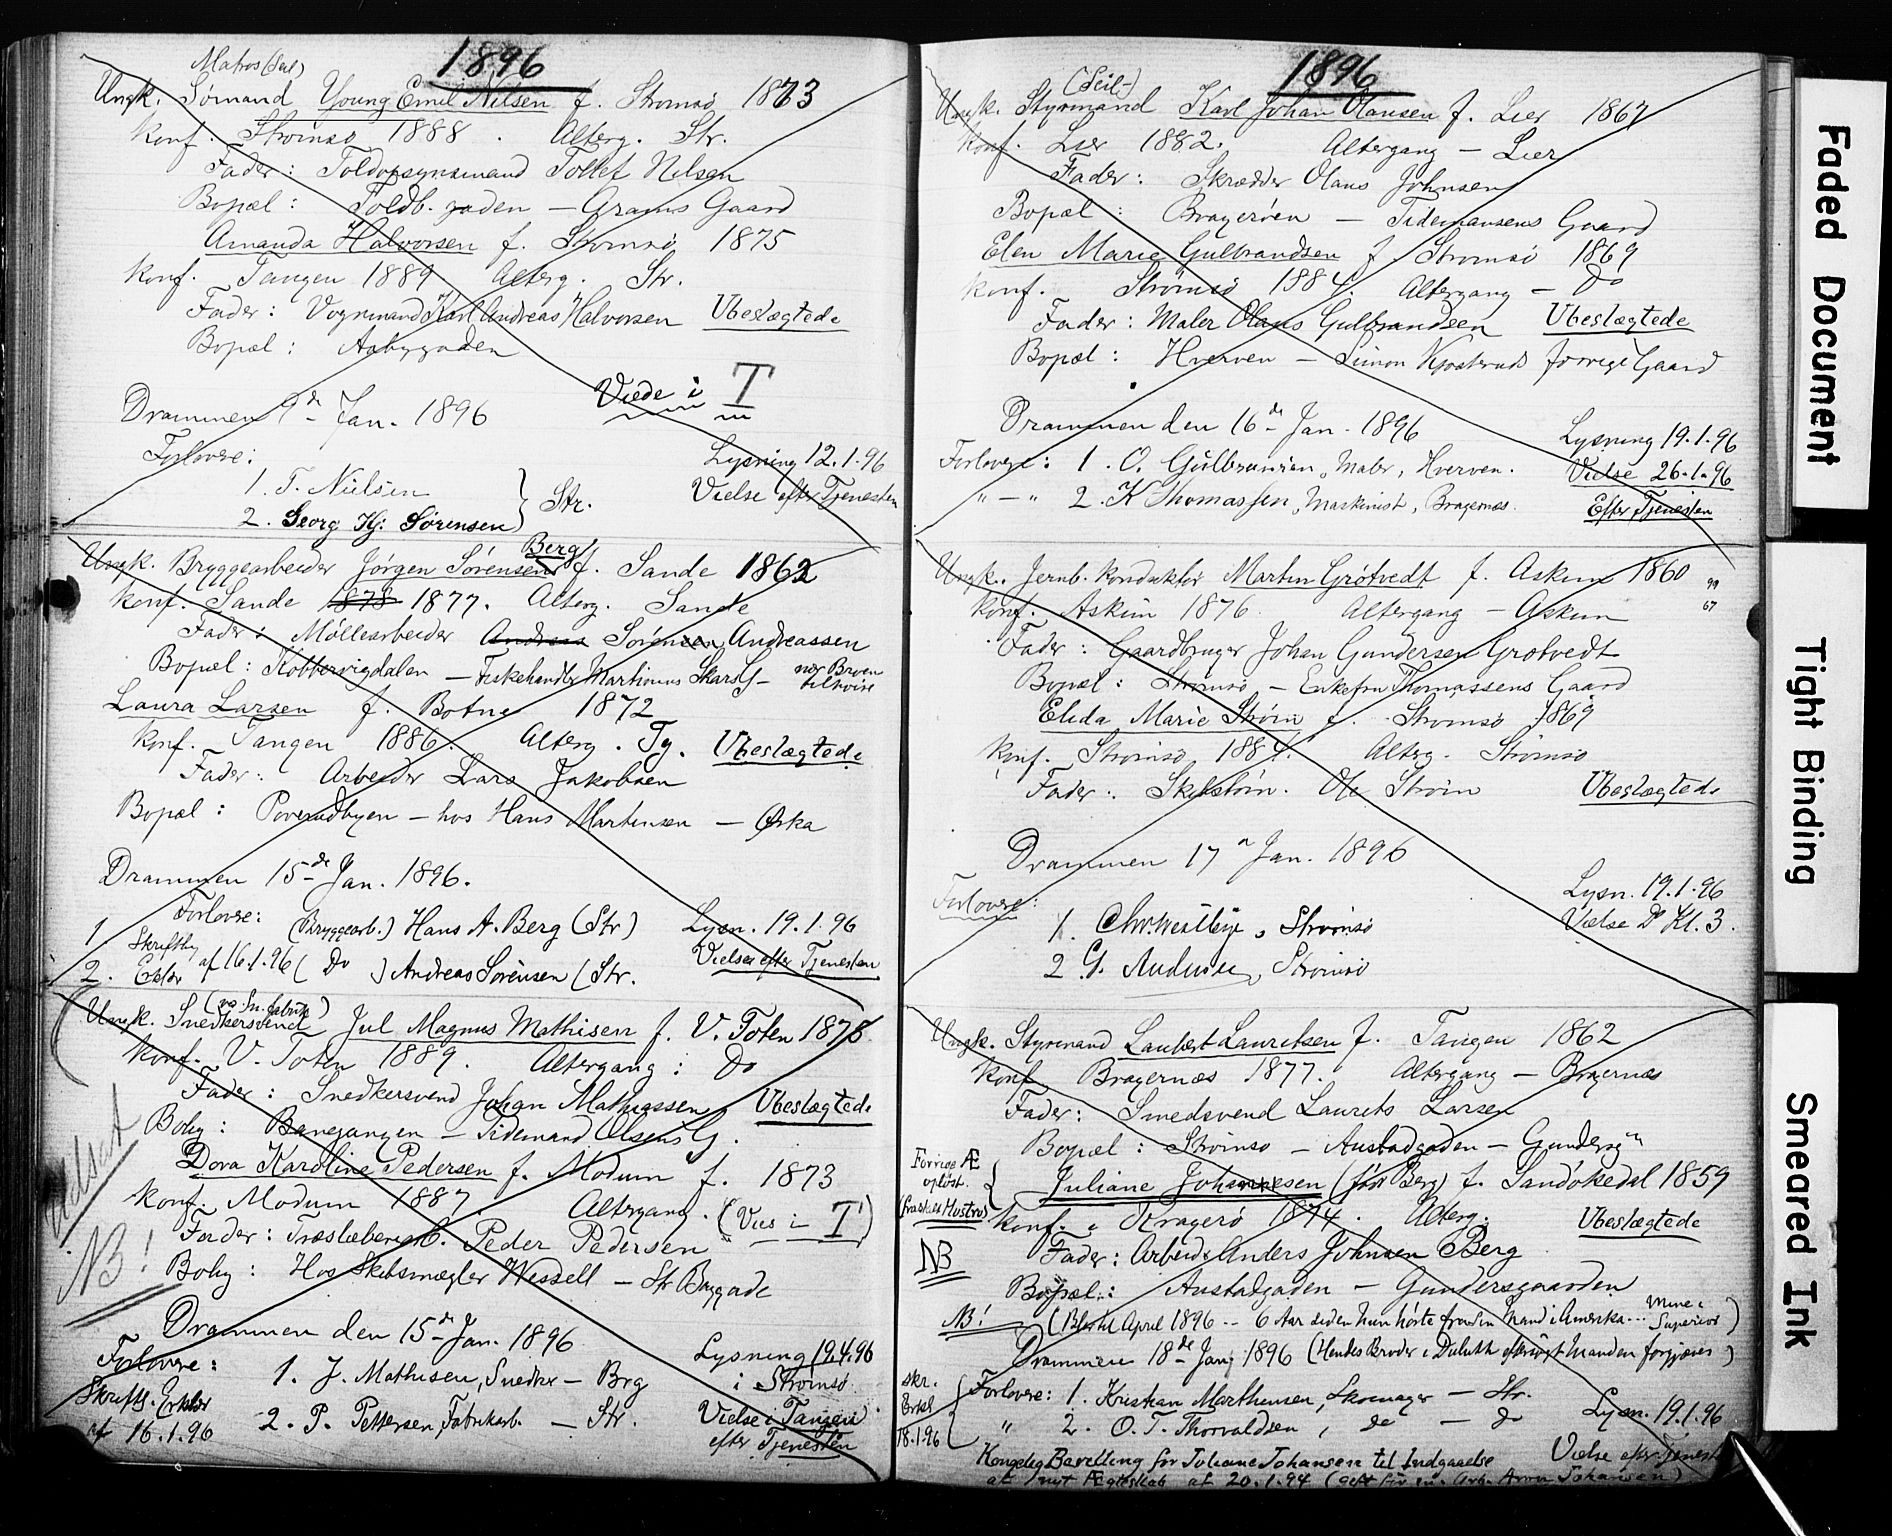 1896
Matros (Seil)
Ungk. Sømand Young Emil Nilsen f. Strømsø 1873
Konf. Strømsø 1888. Alterg. Str.
Fader: Toldopsynsmand Tollef Nilsen
Bopæl: Toldb. gaden — Grams Gaard
Amanda Halvorsen f. Strømsø 1875
Konf. Tangen 1889 Alterg. Str.
Fader: Vognmand Karl Andreas Halvorsen Ubeslægtede
Bopæl: Aabygaden
Viede i T
Drammen 9de Jan. 1896
Forlovere: Lysning 12.1.96
1. T. Nielsen Vielse efter Tjenesten
2. Georg Hj. Sørensen } Str.
Berg
Ungk. Bryggearbeider Jørgen Sørensen f. Sande 1862
Konf. Sande 1878 1877. Alterg. Sande
Fader: Møllearbeider Andreas Sørensen Andreassen
Bopæl: Kobbervigdalen — Fiskehandler Martinius Skars G — nær Broen tilhøire
Laura Larsen f. Botne 1872
Konf. Tangen 1886. Alterg. Tg. Ubeslægtede
Fader: Arbeider Lars Jakobsen
Bopæl: Poverudbyen — hos Hans Martinsen — Øska
Drammen 15de Jan. 1896.
Forlovere:
1 (Bryggearb.) Hans A. Berg (Str) Lysn. 19.1.96
Skriftlig
2. Erklær af 16.1.96 (Do) Andreas Sørensen (Str. Vielse efter Tjenesten
Ungk. Snedkersvend Jul Magnus Mathisen f. V. Toten 1875
Konf. V. Toten 1889. Altergang: Do
Fader: Snedkersvend Johan Mathiassen Ubeslægtede
Bolig: Banegangen — Tidemand Olsens G.
Dora Karoline Pedersen f. Modum f. 1873
Konf. Modum 1887. Altergang. (Vies i T)
Fader: Træsliberiarb. Peder Pedersen
NB!
Bolig: Hos Skibsmægler Wessell — St. Bryggade
Drammen den 15de Jan. 1896
Forlovere: Lysning 19.4.96
1. J. Mathisen, Snedker — Brg i Strømsø
Skriftl. Erklær
af 16.1.96 2. P. Pettersen, Fabrikarb. — Str. Vielse i Tangen
efter Tjenesten
1896
(Seil-)
Ungk. Styrmand Karl Johan Olausen f. Lier 1867
Konf. Lier 1882. Altergang — Lier
Fader: Skrædder Olaus Johnsen
Bopæl: Bragerøen — Tidemansens Gaard
Elen Marie Gulbrandsen f. Strømsø 1869
Konf. Strømsø 1884. Altergang — Do
Fader: Maler Olaus Gulbrandsen Ubeslægtede
Bopæl: Hverven — Simon Kjosteruds forrige Gaard
Drammen den 16de Jan. 1896
Lysning 19.1.96
Forlovere: 1. O. Gulbransen, Maler, Hverven. Vielse 26.1.96
" — " 2. K Thomassen, Maskinist, Bragernæs. Efter Tjenesten
Ungk. Jernb. Konduktør Martin Grøtvedt f. Askim 1860
Konf. Askim 1876. Altergang — Askim
Fader: Gaardbruger Johan Gundersen Grøtvedt
Bopæl: Strømsø — Enkefru Thomassens Gaard
Elida Marie Strøm f. Strømsø 1869
Konf. Strømsø 1884. Alterg. Strømsø
Fader: Skibstøm. Ole Strøm Ubeslægtede
Drammen 17de Jan. 1896
Forlovere: Lysn. 19.1.96
1. Strømsø Vielse Do Kl. 3.
2. Strømsø
Ungk. Styrmand Lambert Lauritsen f. Tangen 1862
Konf. Bragernæs 1877. Altergang — Bragernæs
Fader: Smedsvend Laurits Larsen
Bopæl: Strømsø — Austadgaden — Gundersgn
Forrige Æ. opløst. (fraskilt Hustru)
Juliane Johannesen (født Berg) f. Sandøkedal 1859
Konf. i Kragerø 1874. Alterg. Ubeslægtede
Fader: Arbeider Anders Johnsen Berg
NB
Bopæl: Austadgaden — Gundersgaarden
NB! (Blev til April 1896 — 6 Aar siden hun hørte fra sin Mand i Amerika... Mine i Superior)
Drammen 18de Jan. 1896 (Hendes Broder i Duluth eftersøgt Manden forgjæves)
skr. Erkl. 18.1.96
Forlovere: 1. Kristian Marthinsen, Skomager — Str.
" 2. O. T. Thorvaldsen, do — do Lysn. 19.1.96
Kongelig Bevilling for Juliane Johansen til Indgaaelse Vielse efter Tjenesten
af nyt Ægteskab af 20.1.94
Faded Document
Tight Binding
Smeared Ink